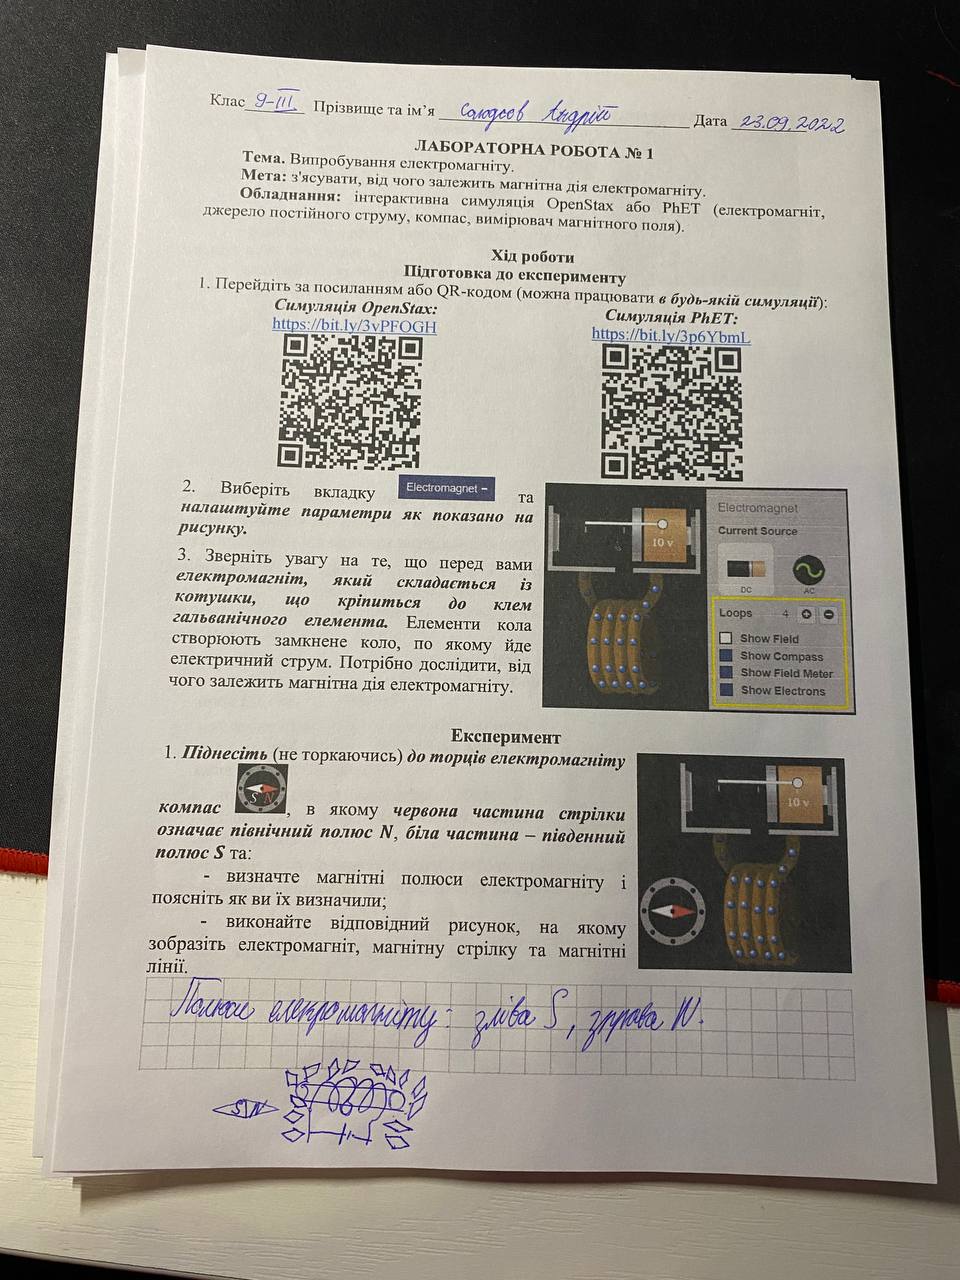 Клас 9-III Прізвище та ім’я Солодсов Андрій Дата 23.09.2022
ЛАБОРАТОРНА РОБОТА № 1
Тема. Випробування електромагніту.
Мета: з'ясувати, від чого залежить магнітна дія електромагніту.
Обладнання: інтерактивна симуляція OpenStax або PhET (електромагніт,
джерело постійного струму, компас, вимірювач магнітного поля).
Хід роботи
Підготовка до експерименту
1. Перейдіть за посиланням або QR-кодом (можна працювати в будь-якій симуляції):
Симуляція OpenStax:
https://bit.ly/3vPFOGH
Симуляція PhET:
https://bit.ly/3p6YbmL
2. Виберіть вкладку Electromagnet – та
налаштуйте параметри як показано на
рисунку.
3. Зверніть увагу на те, що перед вами
електромагніт, який складається із
котушки, що кріпиться до клем
гальванічного елемента. Елементи кола
створюють замкнене коло, по якому йде
електричний струм. Потрібно дослідити, від
чого залежить магнітна дія електромагніту.
10 v
Electromagnet
Current Source
DC AC
Loops 4
Show Field
Show Compass
Show Field Meter
Show Electrons
Експеримент
1. Піднесіть (не торкаючись) до торців електромагніту
компас S N, в якому червона частина стрілки
означає північний полюс N, біла частина – південний
полюс S та:
- визначте магнітні полюси електромагніту і
поясніть як ви їх визначили;
- виконайте відповідний рисунок, на якому
зобразіть електромагніт, магнітну стрілку та магнітні
лінії.
10 v
Полюси електромагніту: зліва S, зправа N.
S N